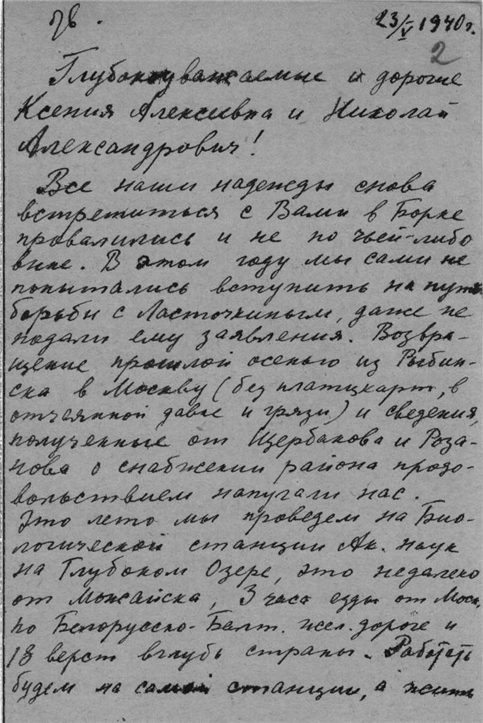 76.
23/V 1940 г.
2
Глубокоуважаемые и дорогие
Ксения Алексивна и Николай
Александрович!
Все наши надежды снова
встретиться с Вами в Борке
провалились и не по чьей-либо
вине. В этом году мы сами не
попытались вступить на путь
борьбы с Ласточкиным, даже не
подали ему заявления. Возвра-
щение прошлой осенью из Рыбин-
ска в Москву (без платцкарт, в
отчаянной давке и грязи) и сведения,
полученные от Щербакова и Роза-
нова о снабжении района продо-
вольствием напугали нас.
Это лето мы проведем на Био-
логической станции Ак. наук
на Глубоком Озере, это недалеко
от Можайска, 3 часа езды от Моск.
по Белорусско-Балт. жел. дороге и
18 верст вглубь страны. Работать
будем на самой станции, а жить